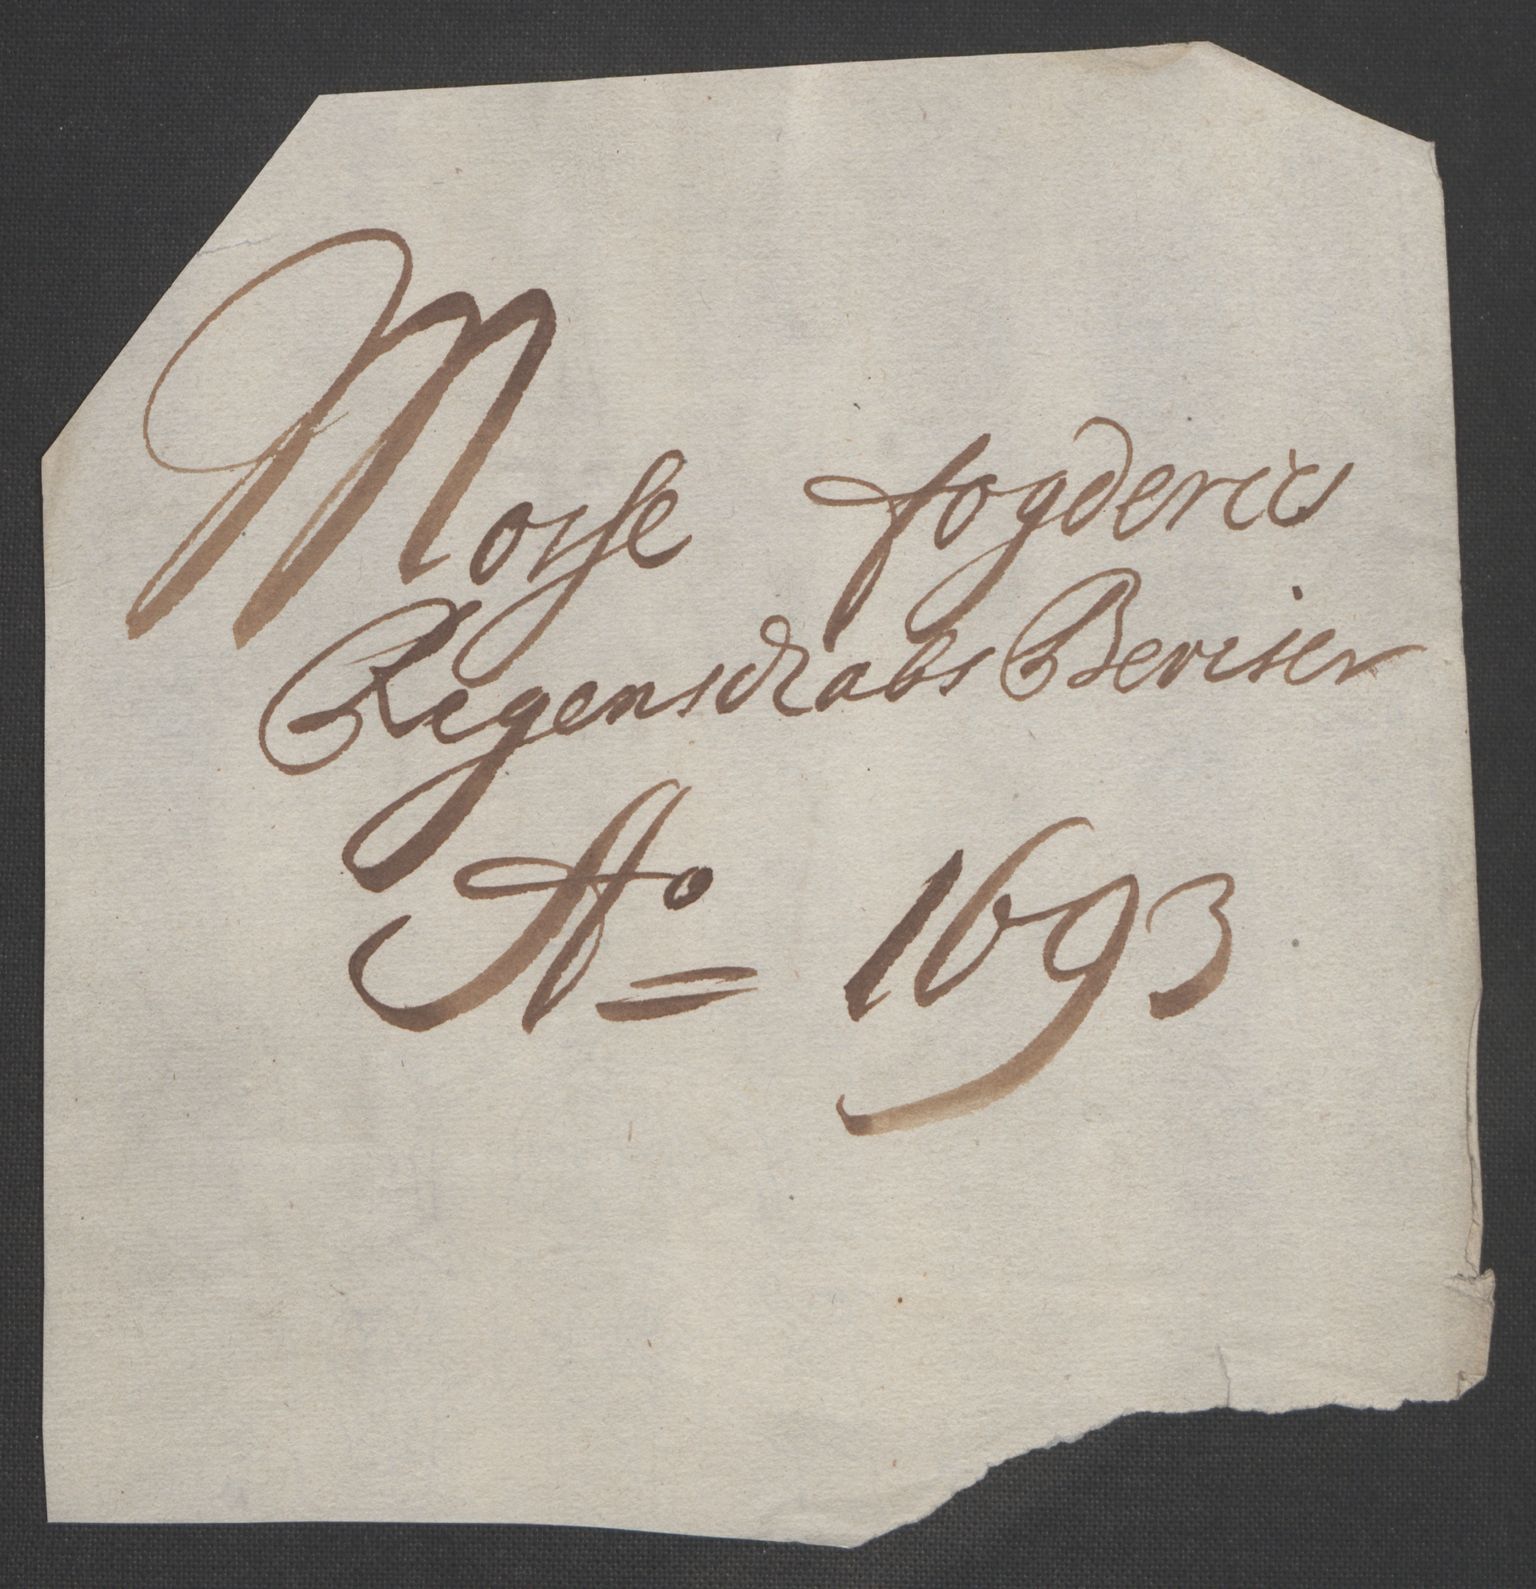 Mosse fogderies
Regenschabs Beviser
Ao 1693